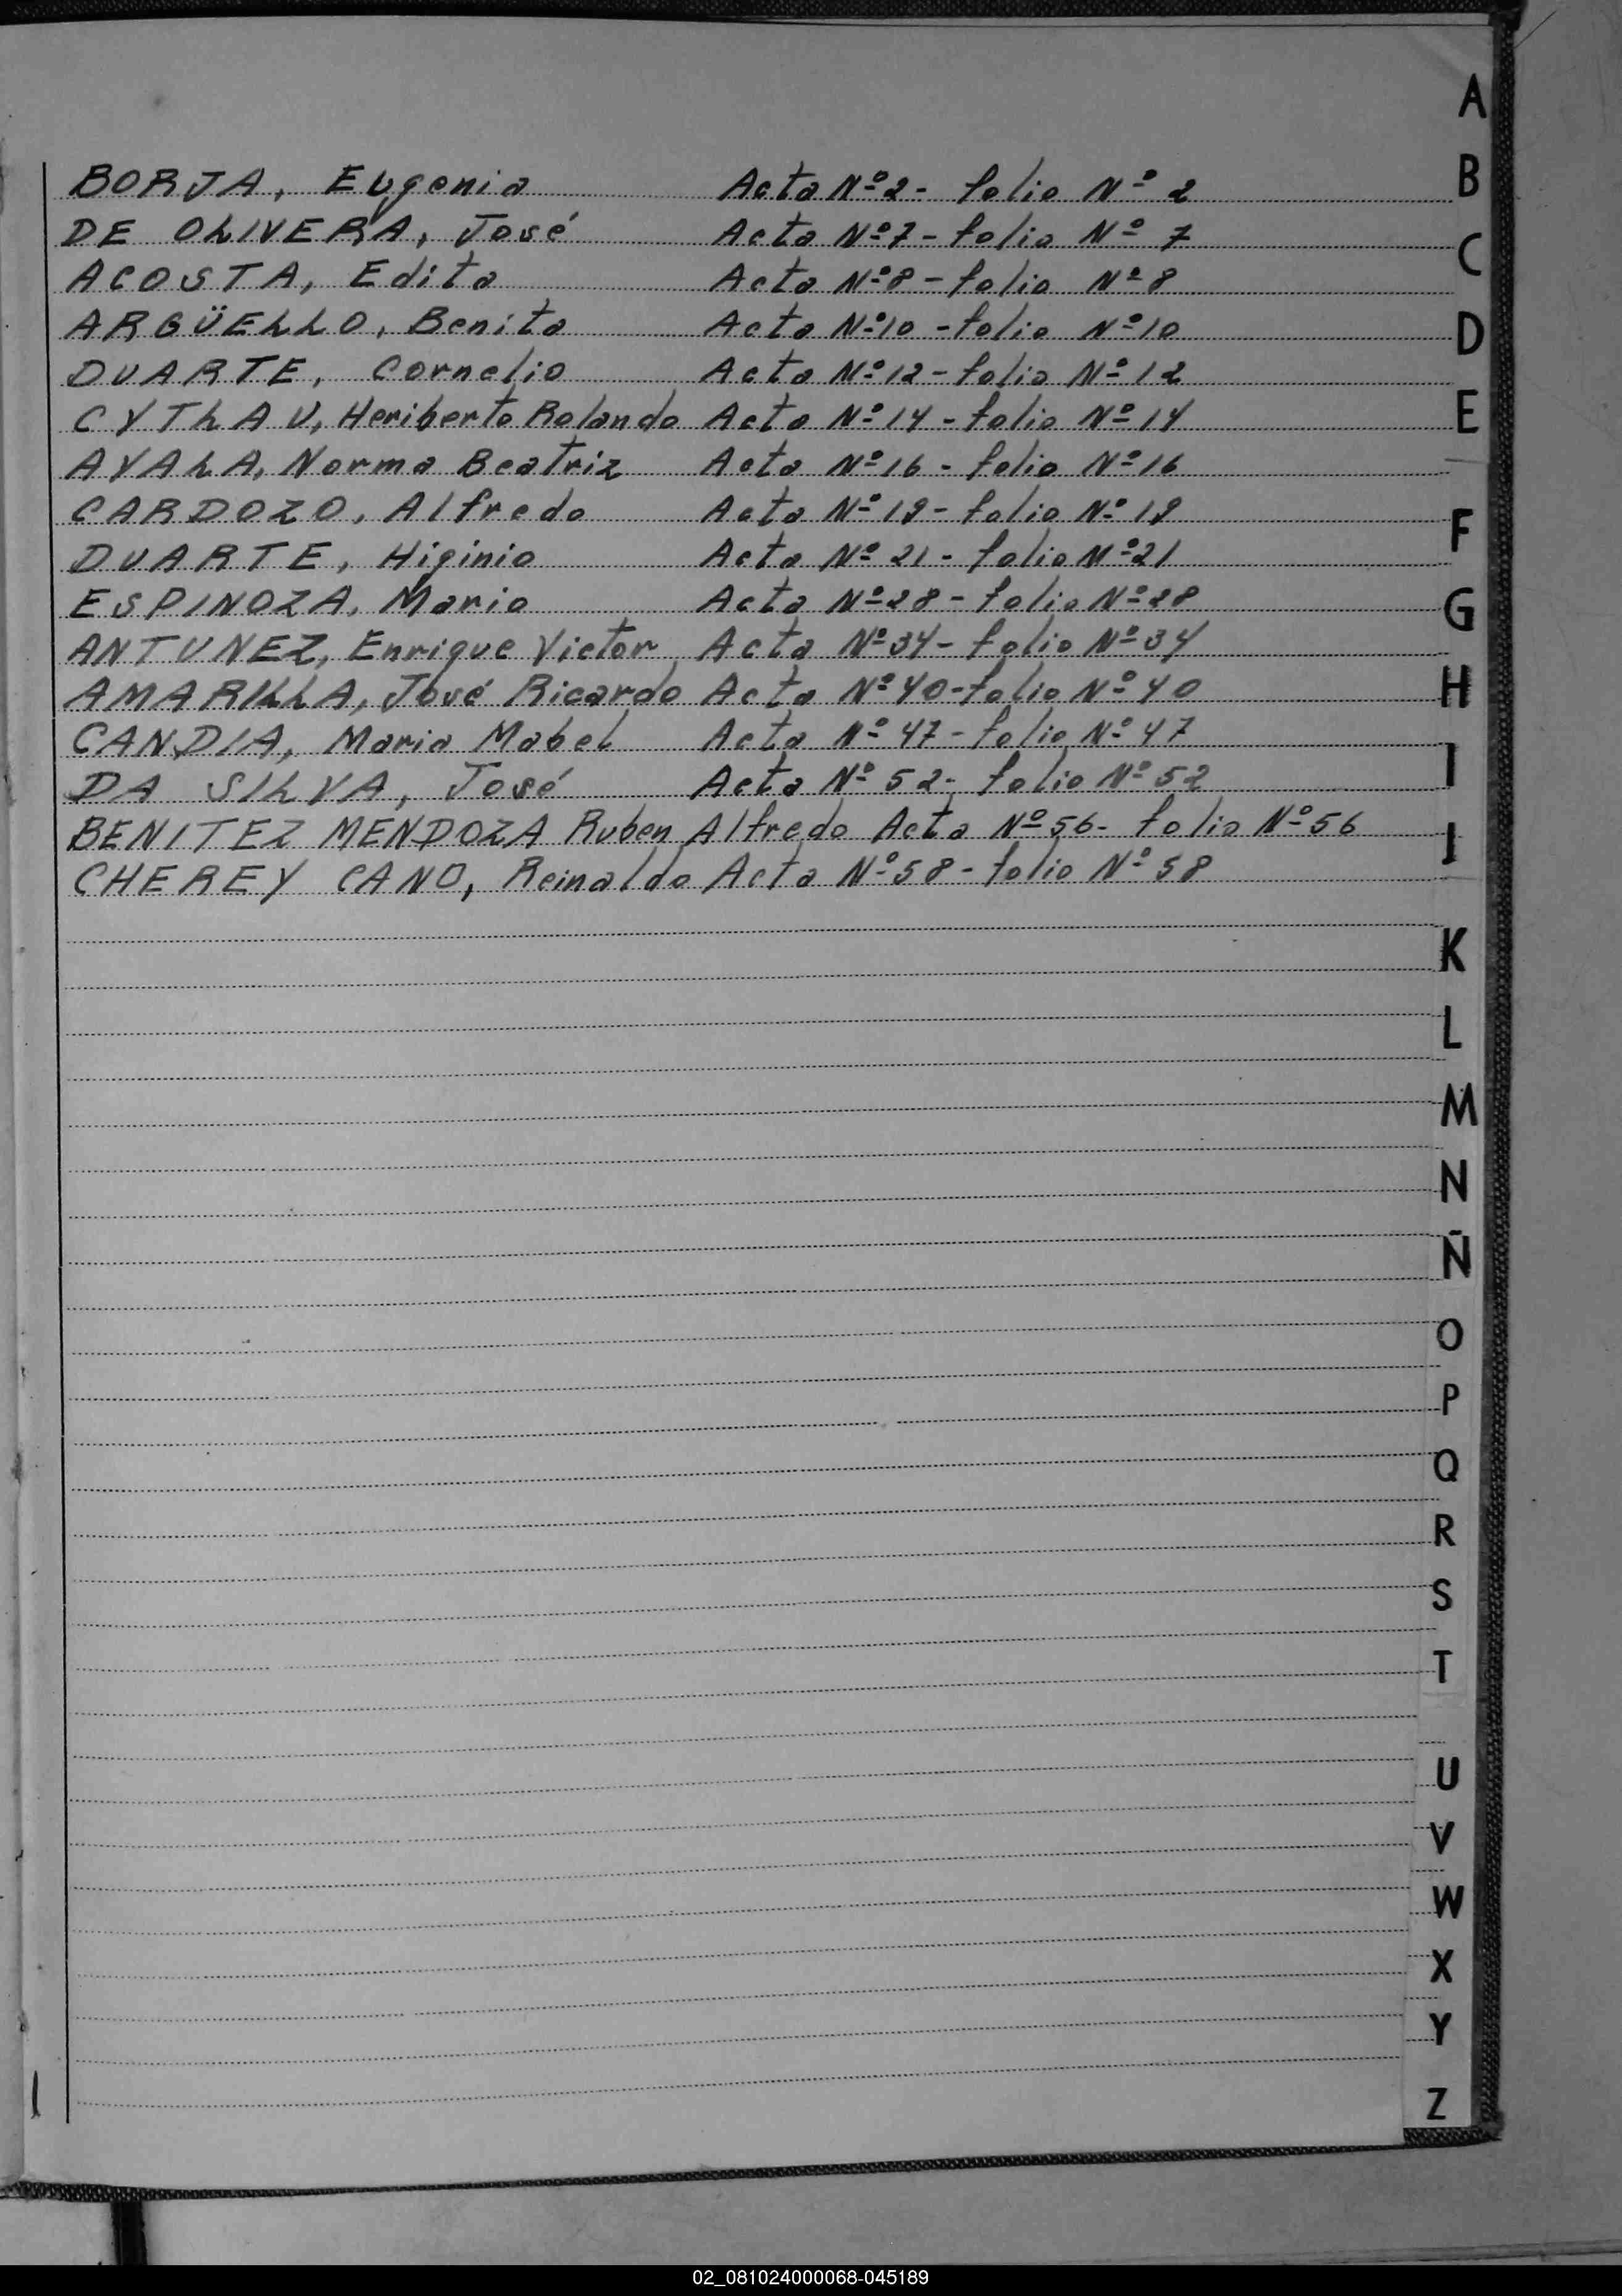 BORJA, Eugenia Acta Nº 2 - folio Nº 2
DE OLIVERA, José Acta Nº 7 - folio Nº 7
ACOSTA, Edita Acta Nº 8 - folio Nº 8
ARGÜELLO, Benita Acta Nº 10 - folio Nº 10
DUARTE, Cornelio Acta Nº 12 - folio Nº 12
CYTLAU, Heriberto Rolando Acta Nº 14 - folio Nº 14
AYALA, Norma Beatriz Acta Nº 16 - folio Nº 16
CARDOZO, Alfredo Acta Nº 19 - folio Nº 19
DUARTE, Higinio Acta Nº 21 - folio Nº 21
ESPINOZA, Mario Acta Nº 28 - folio Nº 28
ANTUNEZ, Enrique Victor Acta Nº 34 - folio Nº 34
AMARILLA, José Ricardo Acta Nº 40 - folio Nº 40
CANDIA, Maria Mabel Acta Nº 47 - folio Nº 47
DA SILVA, José Acta Nº 52 - folio Nº 52
BENITEZ MENDOZA Ruben Alfredo Acta Nº 56 - folio Nº 56
CHEREY CANO, Reinaldo Acta Nº 58 - folio Nº 58
A
B
C
D
E
F
G
H
I
J
K
L
M
N
Ñ
O
P
Q
R
S
T
U
V
W
X
Y
Z
02_081024000068-045189